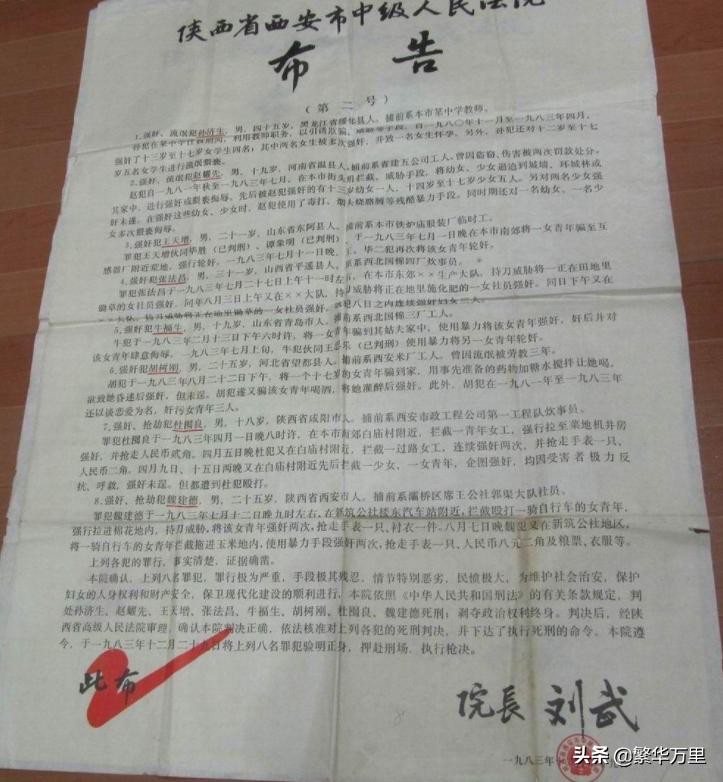 陕西省西安市中级人民法院
布告
（第二号）
1.强奸、流氓犯孙济生，男，四十五岁，黑龙江省绥化县人，捕前系本市某中学教师。
孙犯在某中学任教期间，利用教师职务，以引诱欺骗、威胁等手段，自一九八〇年十一月至一九八三年四月，
强奸了十三岁至十七岁女学生四名；其中两名女生被多次强奸，并致一名女生怀孕。另外，孙犯还对十二岁至十七
岁五名女学生进行流氓猥亵。
2.强奸、流氓犯赵耀先，男，十九岁，河南省温县人，捕前系省建五公司工人，曾因盗窃、伤害被两次罚款处分。
赵犯自一九八一年秋至一九八三年七月，在本市街头用拦截、威胁手段，将幼女、少女逼迫到城墙、环城林或
其家中，进行强奸或猥亵侮辱。先后被赵犯强奸的有十三岁幼女一人，十四岁至十七岁少女五人。另对两名少女强
奸未遂。在强奸这些幼女、少女时，赵犯使用了毒打、烟头烧胳膊等残酷暴力手段。同时期还对一名幼女、一名少
女多次猥亵侮辱。
3.强奸犯王天增，男，二十一岁，山东省东阿县人，捕前系本市铁炉庙服装厂临时工。
罪犯王天增伙同毕胜（已判刑）、谭象明（已判刑），于一九八三年七月一日晚在本市南郊将一女青年骗至互
感器厂附近菜地，强行轮奸。一九八三年七月十一日晚，王、毕二犯再次将该女青年轮奸。
4.强奸犯张法昌，男，三十一岁，山西省平遥县人，捕前系西北国棉四厂炊事员。
罪犯张法昌于一九八三年二月二十七日上午十一时左右，在本市东郊××生产大队，持刀威胁将一正在田地里
锄草的女社员强奸。同年八月三日上午又在××大队，持刀威胁将正在地里施化肥的一女社员强奸。同日下午又在
5.强奸犯牛福生，男，十九岁，山东省青岛市人，捕前系西北国棉三厂工人。
牛犯于一九八三年二月十三日下午六时许，将一女青年骗到其姑夫家中，使用暴力将该女青年强奸，奸后并对
该女青年肆意侮辱。一九八三年七月上旬，牛犯伙同王
（已判刑）使用暴力将另一女青年轮奸。
6.强奸犯胡树刚，男，二十五岁，河北省望都县人，捕前系西安米厂工人，曾因流氓被劳教三年。
胡犯于一九八三年八月二十二日下午，将一个十七岁的女青年骗到家，用事先准备的药物加糖水搅拌让她喝，
欲致她昏迷后强奸，但未逞。胡犯遂又骗该女青年喝酒，将她灌醉后强奸。此外，胡犯在一九八一年至一九八三年
还以谈恋爱为名，奸污女青年三人。
7.强奸、抢劫犯杜囤良，男，十八岁，陕西省咸阳市人，捕前系西安市政工程公司第一工程队炊事员。
罪犯杜囤良于一九八三年四月一日晚八时许，在本市南郊白庙村附近，拦截一青年女工，强行拉至菜地机井房
强奸，并抢走人民币贰角。四月五日晚杜犯又在白庙村附近，拦截一过路女工，连续强奸两次，并抢走手表一只，
人民币二角。四月九日、十五日两晚又在白庙村附近先后拦截一少女，一女青年，企图强奸，均因受害者极力反
抗、呼救，强奸未遂。但都遭到杜犯殴打。
8.强奸、抢劫犯魏建德，男，二十五岁，陕西省西安市人，捕前系灞桥区席王公社郭渠大队社员。
罪犯魏建德于一九八三年七月十二日晚九时左右，在新筑公社搂东汽车站附近，拦截殴打一骑自行车的女青年，
强行拉进棉花地内，持刀威胁，将该女青年强奸两次，抢走手表一只、衬衣一件。八月七日晚魏犯又在新筑公社地区，
将一骑自行车的女青年拦截拖进玉米地内，使用暴力手段强奸两次，抢走手表一只、人民币八元二角及粮票、衣服等。
上列各犯的罪行，事实清楚，证据确凿。
本院确认，上列八名罪犯，罪行极为严重，手段极其残忍，情节特别恶劣，民愤极大，为维护社会治安，保护
妇女的人身权利和财产安全，保卫现代化建设的顺利进行，本院依照《中华人民共和国刑法》的有关条款规定，判
处孙济生、赵耀先、王天增、张法昌、牛福生、胡树刚、杜囤良、魏建德死刑；剥夺政治权利终身。判决后，经陕
西省高级人民法院审理，确认本院判决正确，依法核准对上列各犯的死刑判决，并下达了执行死刑的命令。本院遵
令，于一九八三年十二月二十九日将上列八名罪犯验明正身，押赴刑场，执行枪决。
此布
院長 刘武
一九八三年
头条 @繁华万里